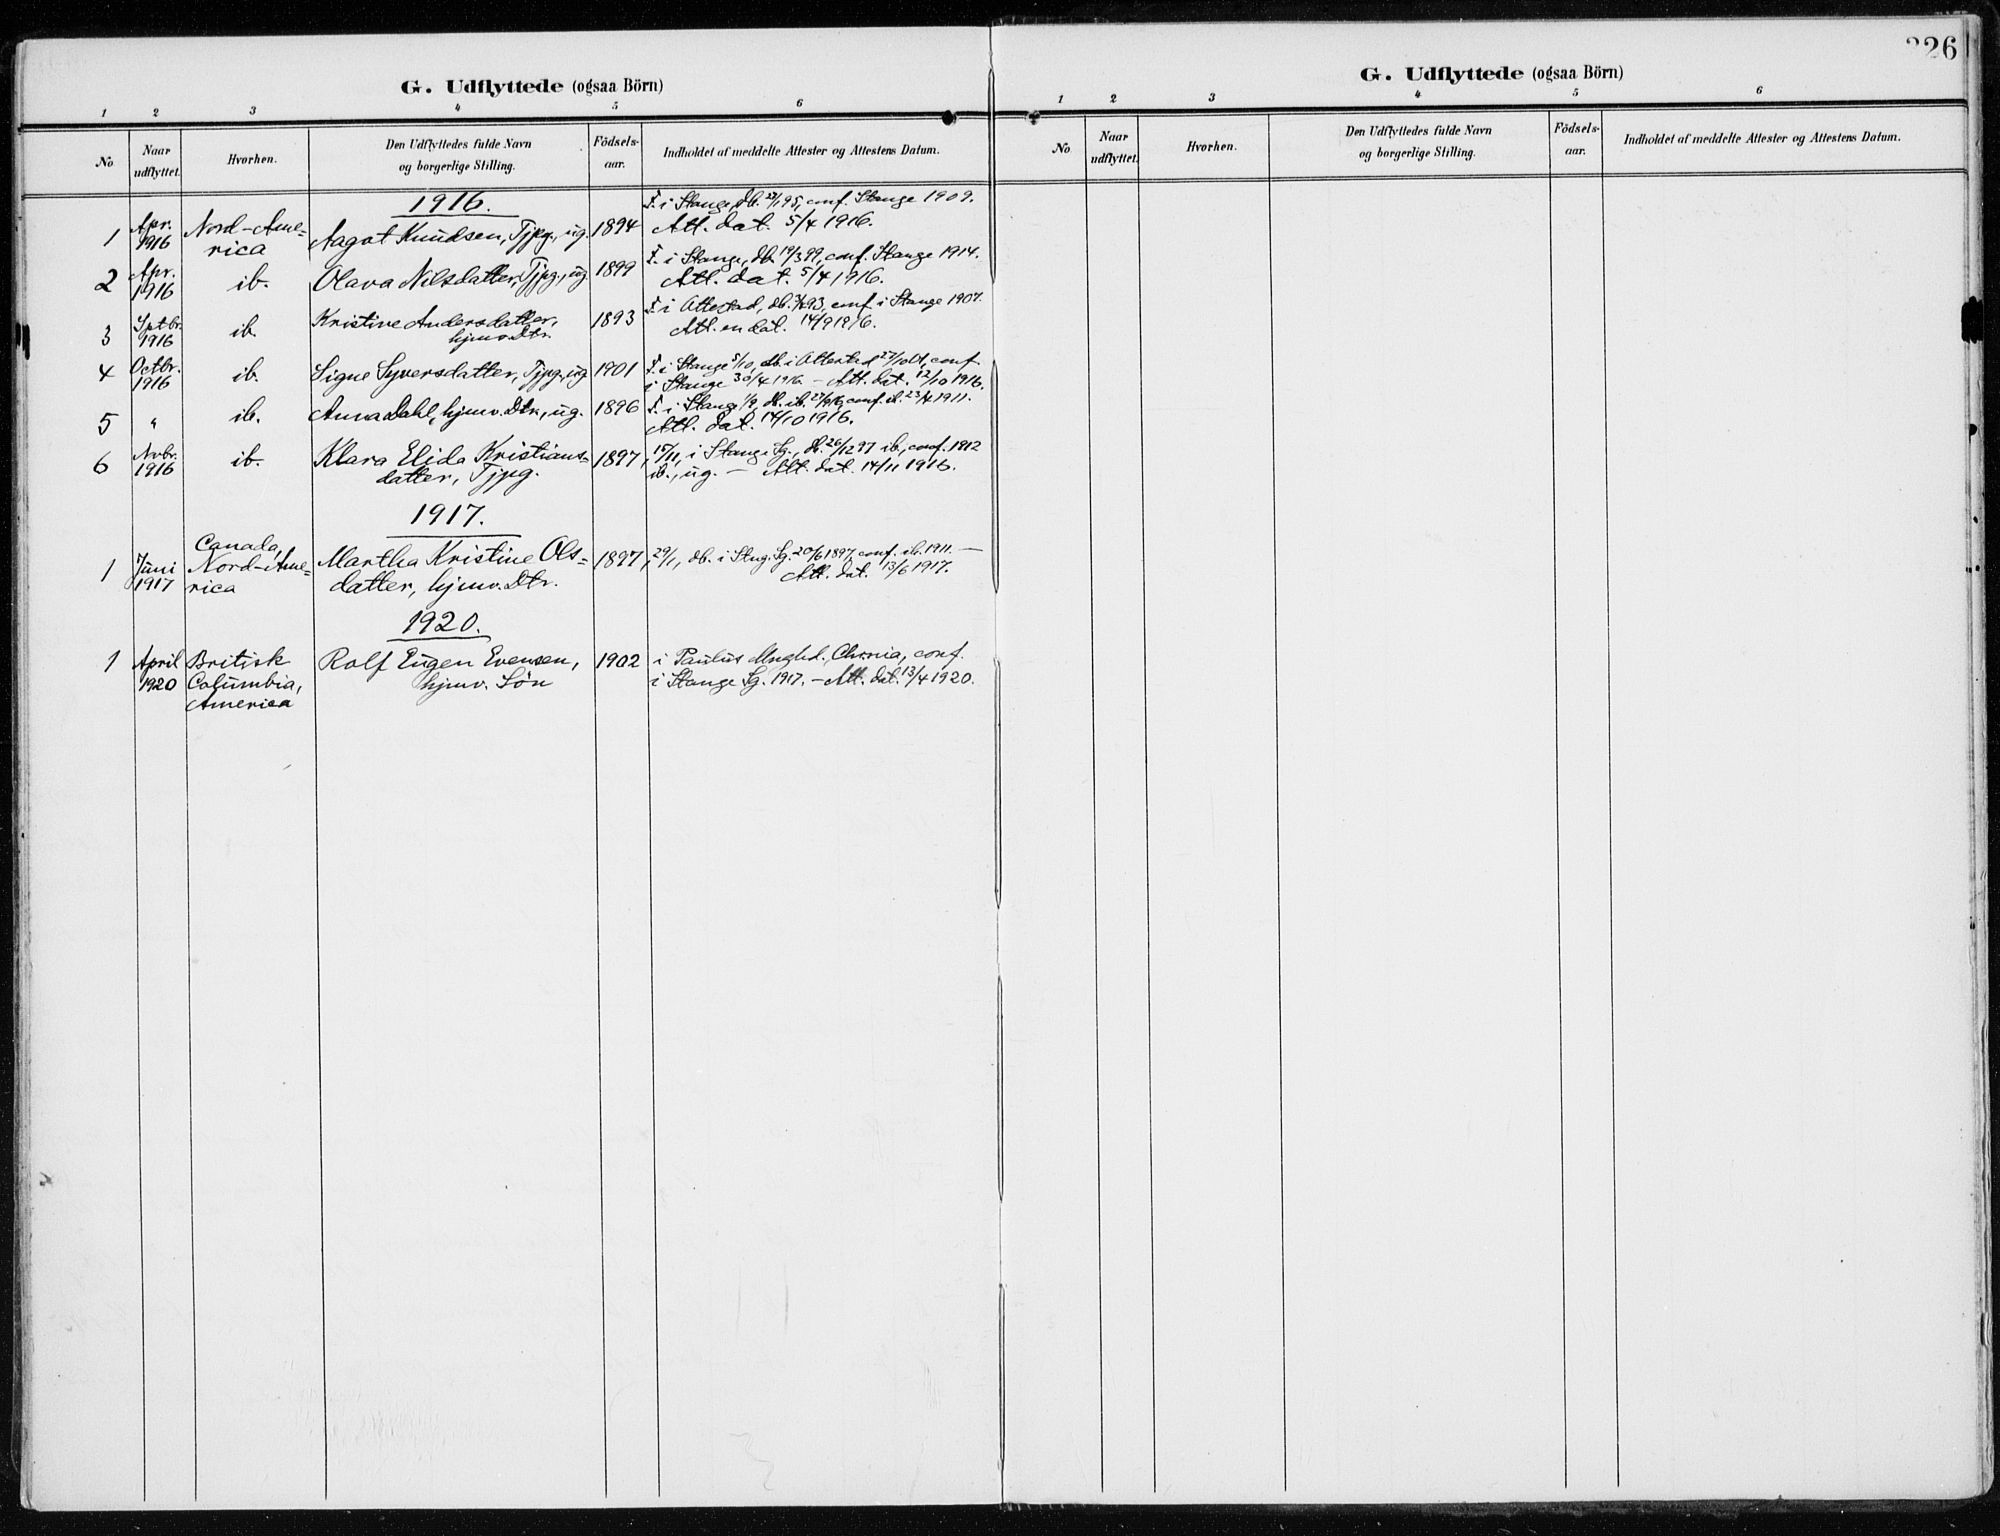 G. Udflyttede (ogsaa Börn)
1 2 3 4 5 6
No
Naar udflyttet.
Hvorhen.
Den Udflyttedes fulde Navn
og borgerlige Stilling.
Födsels-
aar.
Indholdet af meddelte Attester og Attestens Datum.
1916.
1 Apr. 1916 Nord-Ame-
rica
Aagot Knudsen, Tjpg., ug. 1894
F. i Stange, db. 27/1 95, conf. Stange 1909.
Att. dat. 5/4 1916.
2 Apr. 1916 ib. Olava Nilsdatter, Tjpg., ug 1899
F. i Stange, db. 19/3 99, conf. Stange 1914.
Att. dat. 5/4 1916.
3 Sptbr. 1916 ib. Kristine Andersdatter,
hjmv. Dtr. 1893
F. i Ottestad, db. 93, conf. i Stange 1907.
Att. en dat. 14/9 1916.
4 Octbr. 1916 ib. Signe Syversdatter, Tjpg., ug 1901
F. i Stange 5/10, db. i Ottestad 27/10 01, conf.
i Stange 30/4 1916. - Att. dat. 12/10 1916.
5 " ib. Anna Dahl, hjmv. Dtr., ug. 1896
F. i Stange 1/9, db. ib. conf. ib. 23/4 1911.
Att. dat. 14/10 1916.
6 Novbr. 1916 ib. Klara Elida Kristians-
datter, Tjpg. 1897,
15/11, i Stange Sg., db. 26/12 97 ib., conf. 1912
ib., ug. - Att. dat. 14/11 1916.
1917.
1 Juni 1917 Canada,
Nord-Ame-
rica
Martha Kristine Ols-
datter, hjmv. Dtr. 1897,
29/1, db. i Stng. Sg. 20/6 1897, conf. ib. 1911. -
Att. dat. 13/6 1917.
1920.
1 April 1920 Britisk
Columbia,
America
Rolf Eugen Evensen,
hjmv. Sön 1902
i Paulus Mnghd. Chr.nia, conf.
i Stange Sg. 1917. - Att. dat. 13/4 1920.
226
G. Udflyttede (ogsaa Börn)
1 2 3 4 5 6
No
Naar
udflyttet.
Hvorhen.
Den Udflyttedes fulde Navn
og borgerlige Stilling.
Födsels-
aar.
Indholdet af meddelte Attester og Attestens Datum.